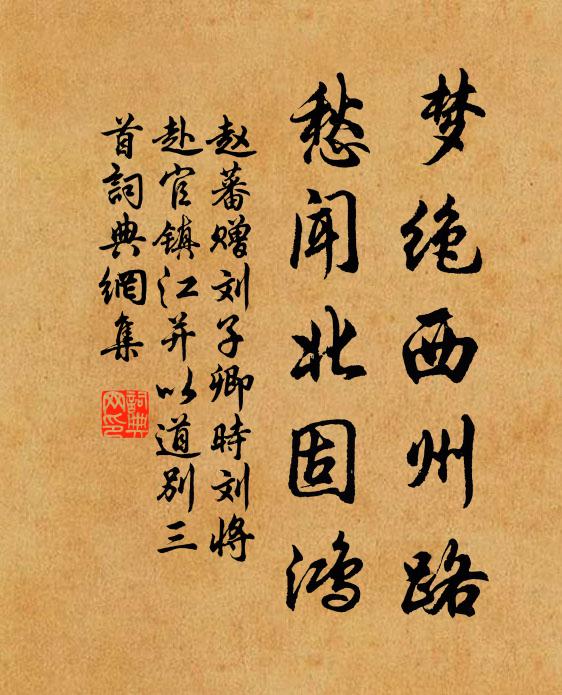 梦绝西州路
愁闻北固鸿
赵蕃赠刘子卿时刘将
赴官镇江并以道别三
首詞典網集
詞典
网印